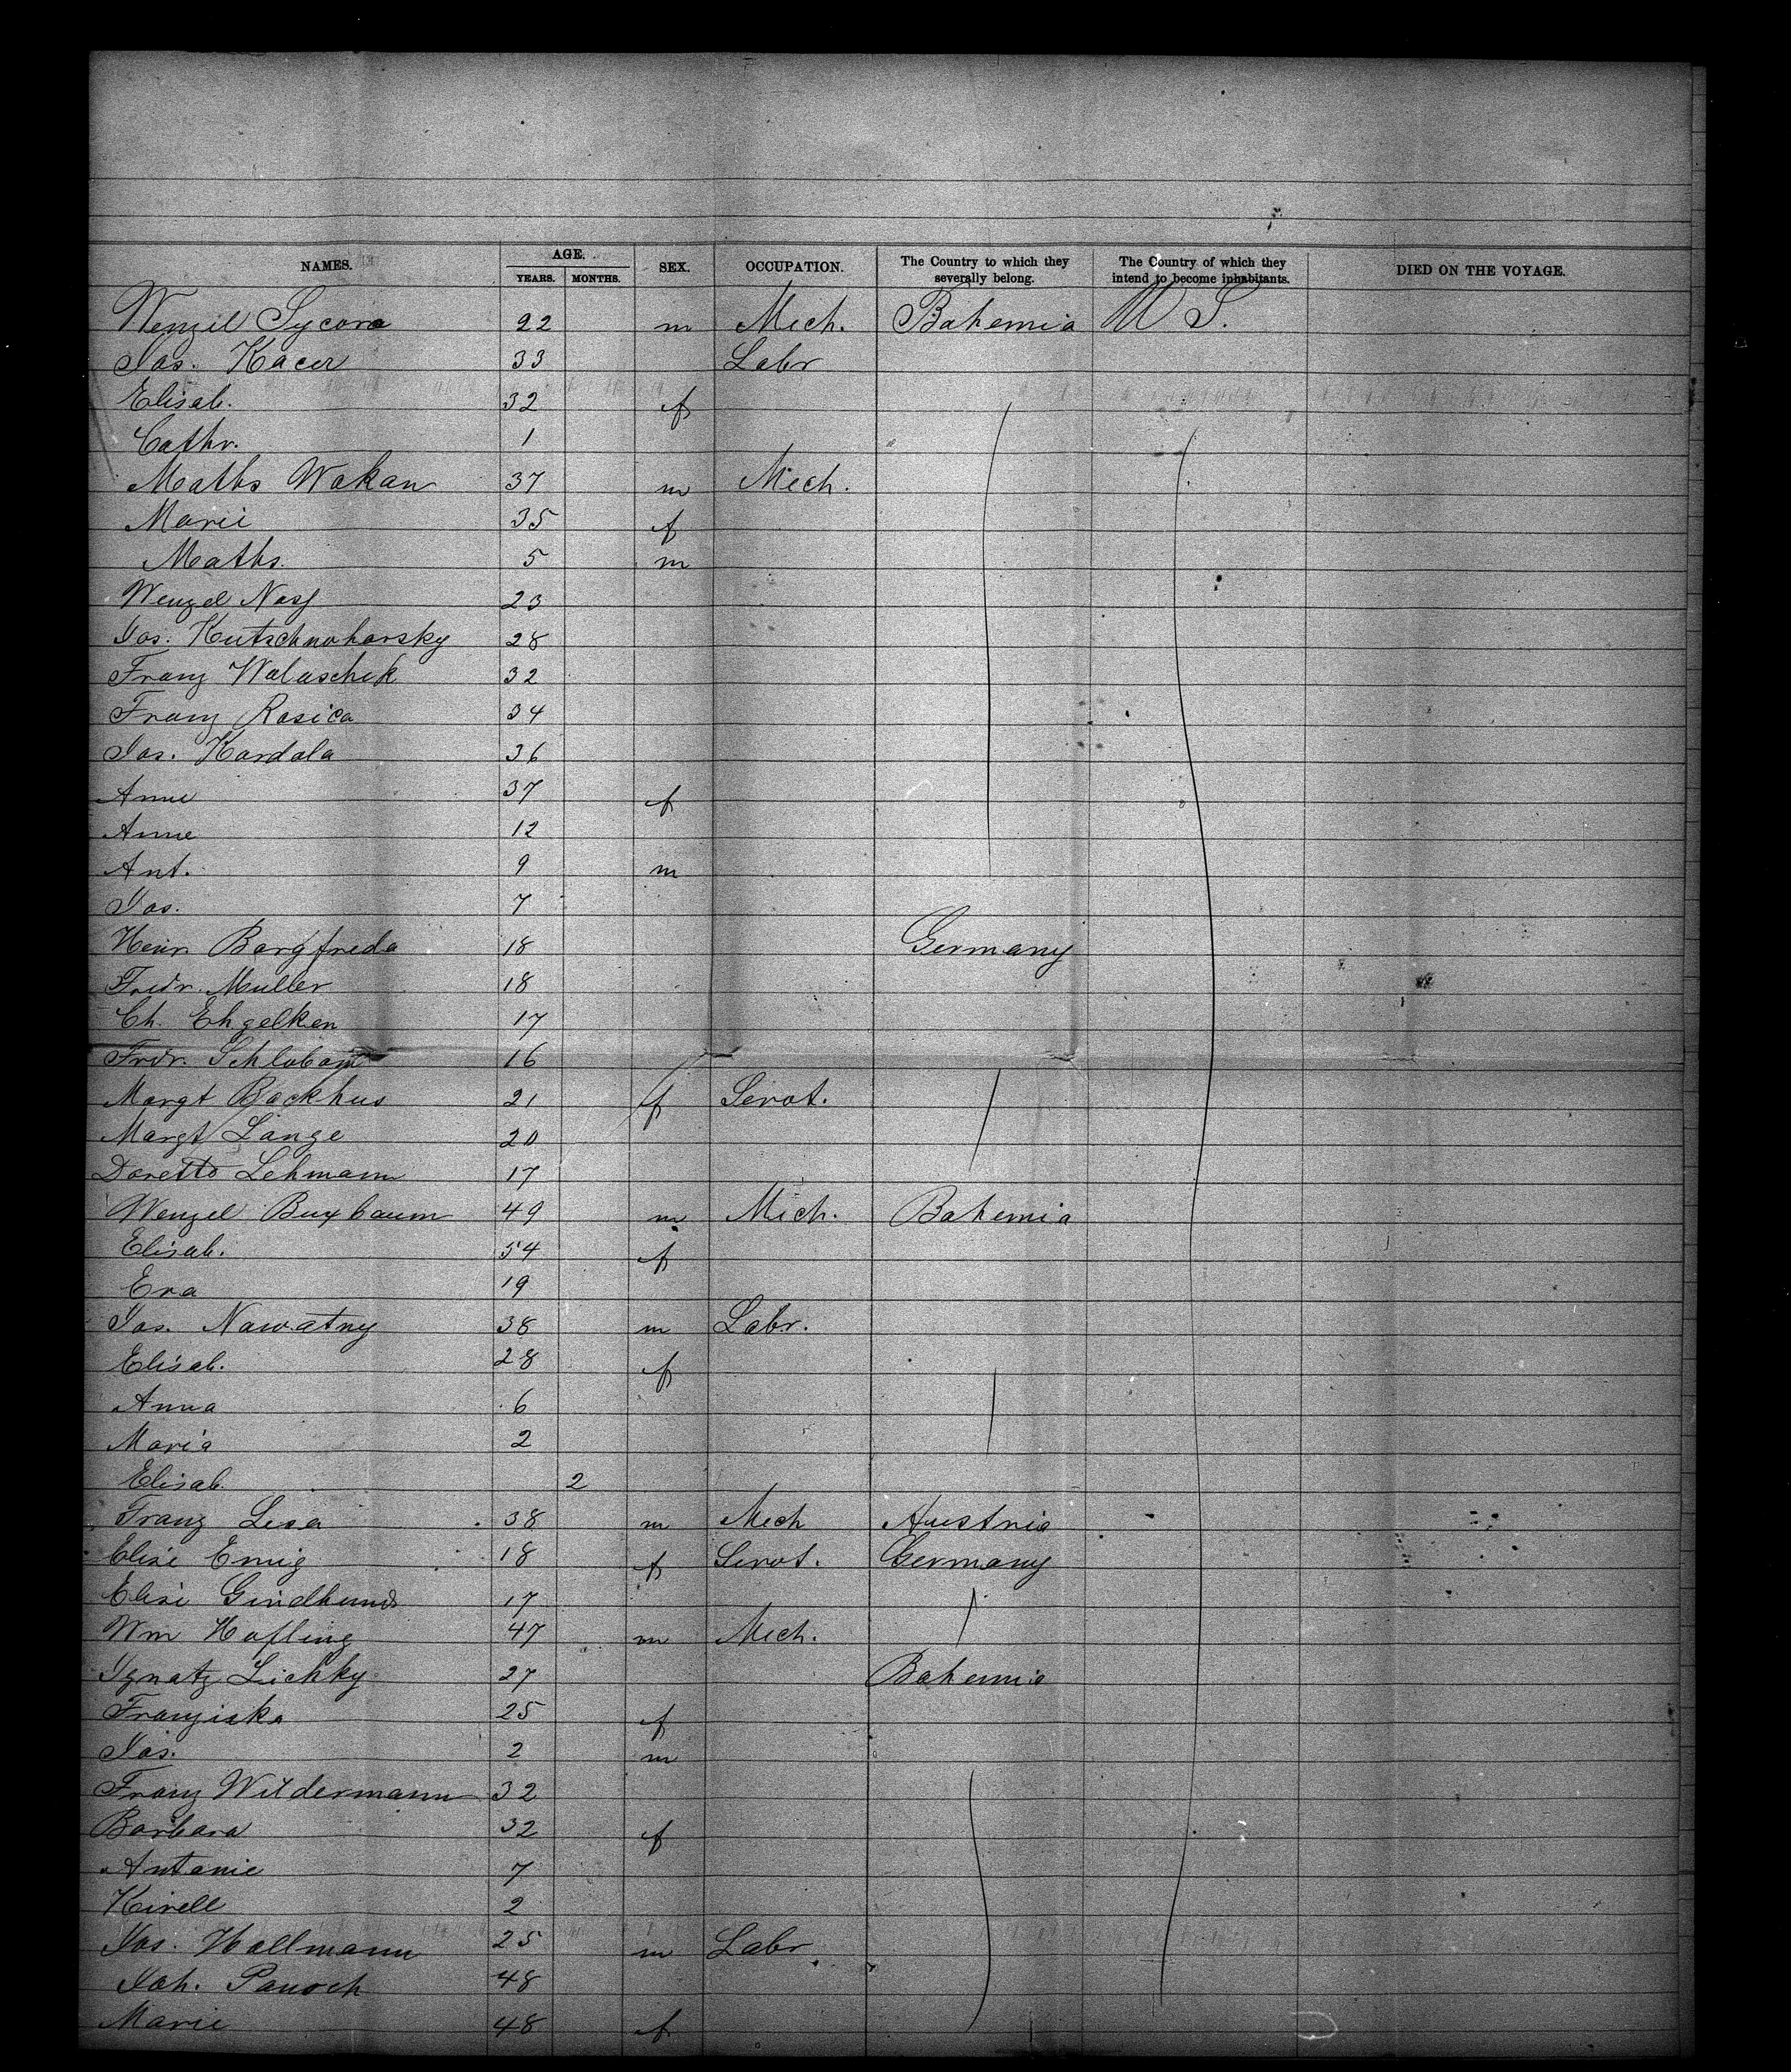 NAMES. AGE. YEARS. MONTHS. SEX. OCCUPATION. The Country to which they severally belong. The Country of which they intend to become inhabitants. DIED ON THE VOYAGE.
Wenzil Sycora 22 m Mech. Bohemia U S.
Jos. Kacer 33 Labr
Elisab. 32 f
Cathr. 1
Maths Wokan 37 m Mech.
Marie 35 f
Maths. 5 m
Wenzel Nass 23
Jos. Kutschnoharsky 28
Franz Walaschek 32
Franz Rosica 34
Jos. Kordala 36
Anne 37 f
Anne 12
Ant. 9 m
Jos. 7
Heinr. Borgfrede 18 Germany
Fredr. Muller 18
Ch. Ehgelken 17
Frdr. Schlobom 16
Margt Backhus 21 f Servt.
Margt Lange 20
Dorette Lehmann 17
Wenzel Buxbaum 49 m Mech. Bohemia
Elisab. 54 f
Eva 19
Jos. Nawatny 38 m Labr.
Elisab. 28 f
Anna 6
Maria 2
Elisab. 2
Franz Lesa 38 m Mech Austria
Elise Emig 18 f Servt. Germany
Elise 17
Wm Hofling 47 m Mech.
Ignatz Lichky 27 Bohemia
Franziska 25 f
Jos. 2 m
Franz Wildermann 32
Barbara 32 f
Antonie 7
Kirell 2
Jos. Hallmann 25 m Labr.
Joh. Panoch 48
Marie 48 f